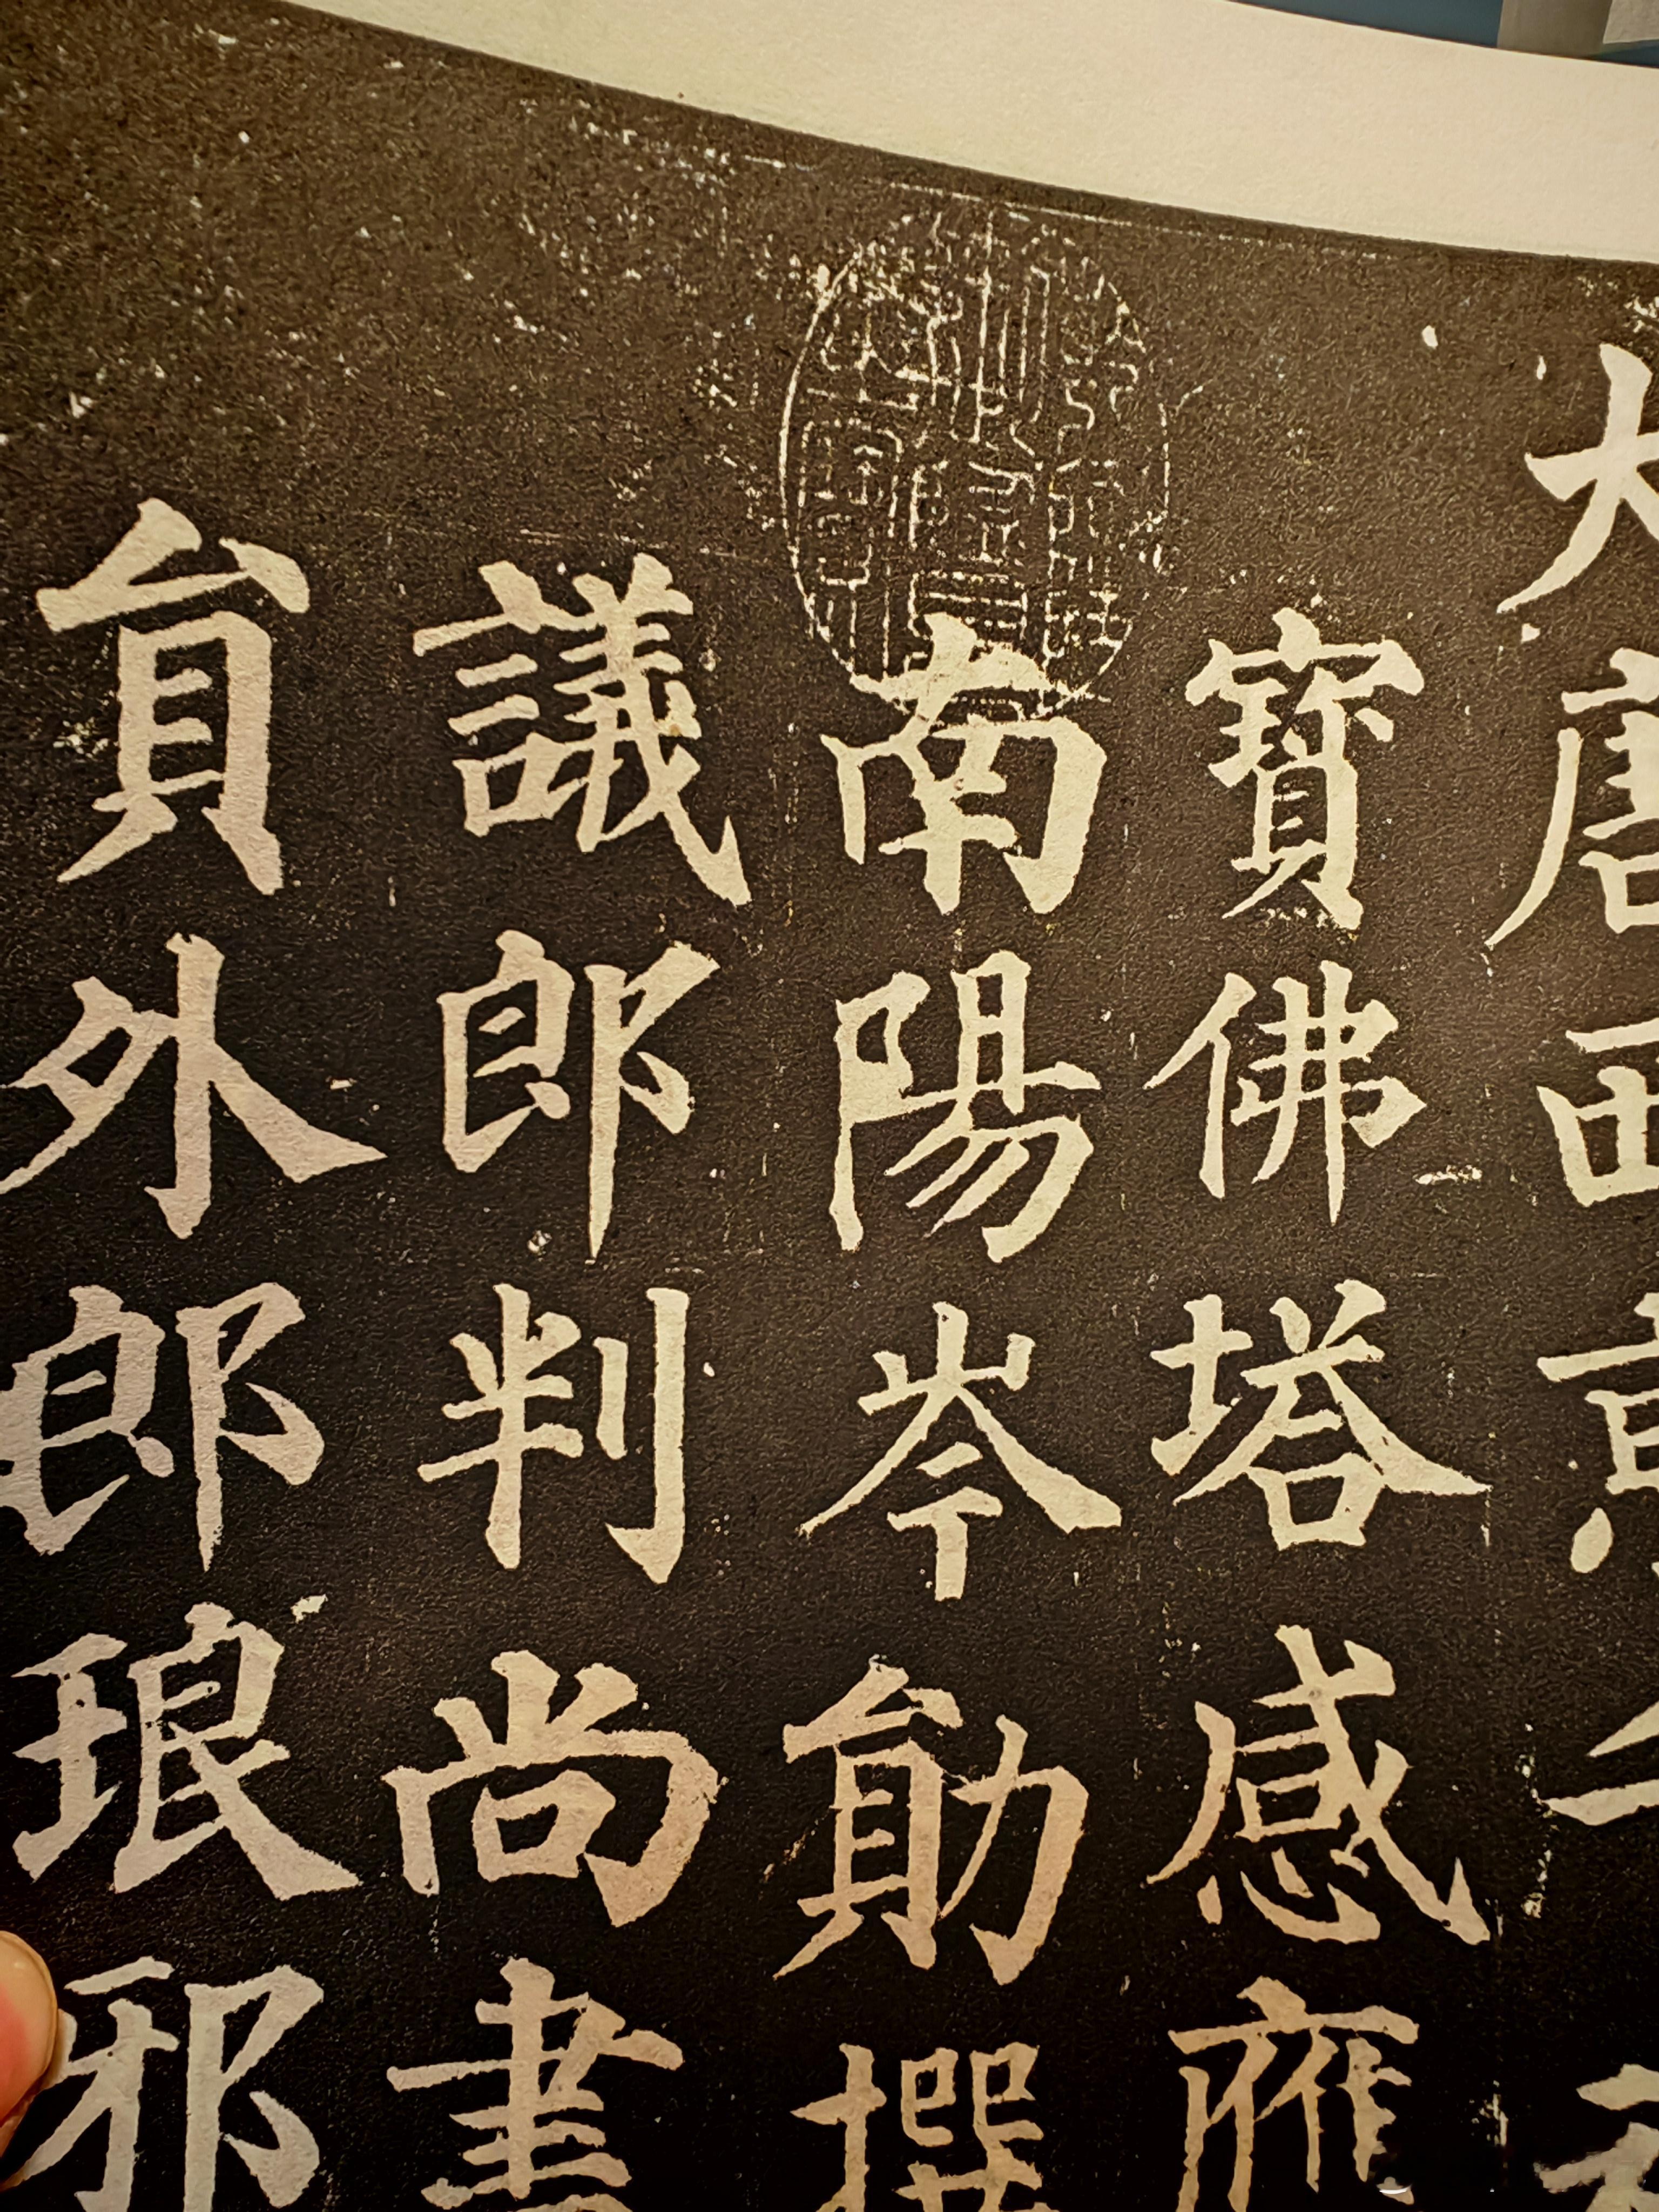 大唐西京千
寶佛塔感應
南陽岑勛撰
議郎判尚書
貟外郎琅邪